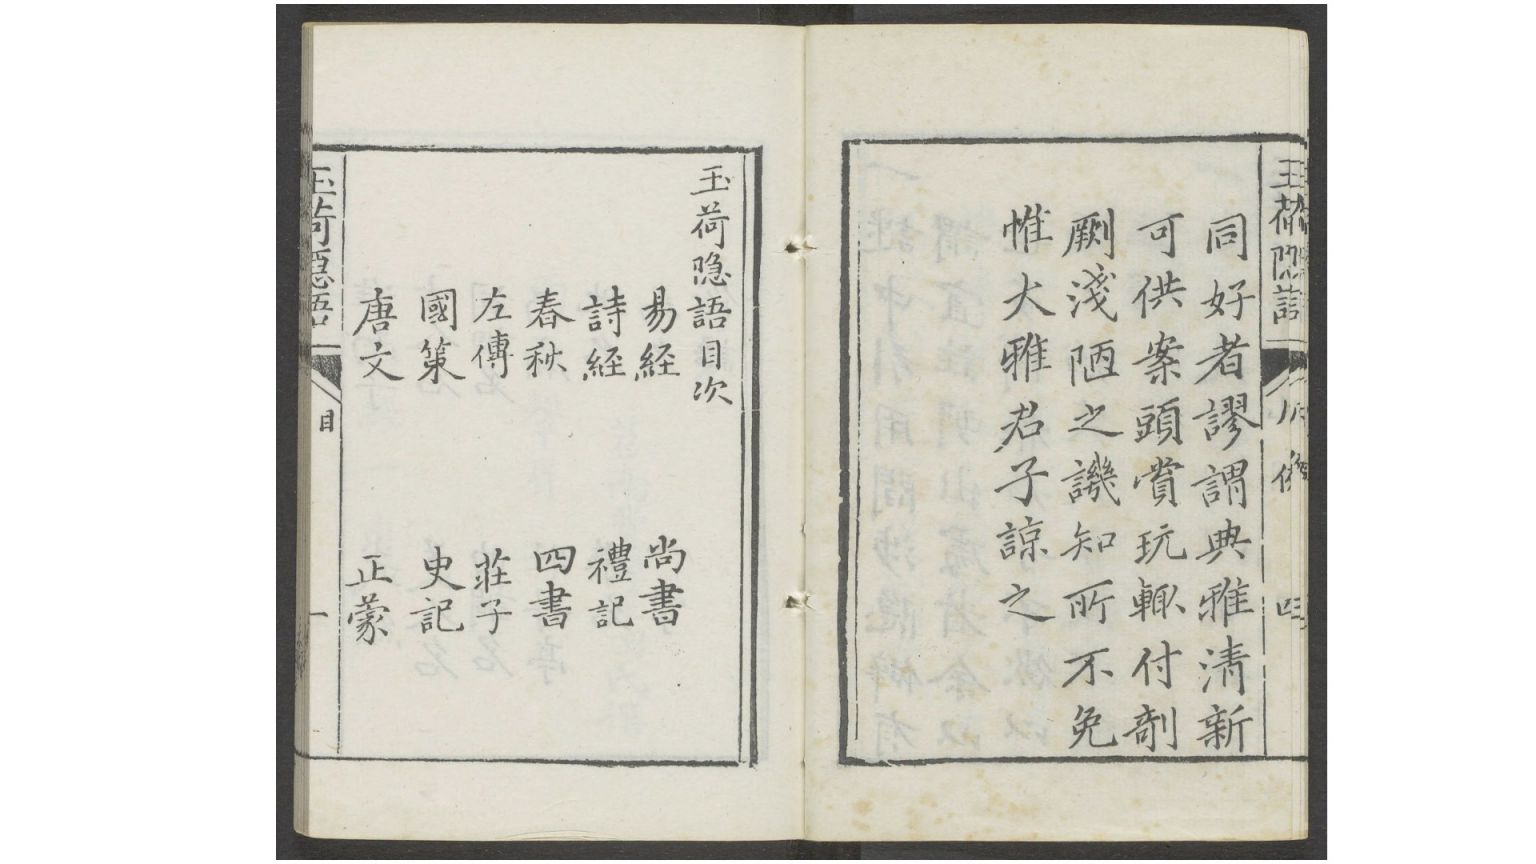 玉荷隱語
凡例
四
同好者謬謂典雅清新
可供案頭賞玩輙付剞
劂淺陋之譏知所不免
惟大雅君子諒之
玉荷隱語目次
易経 尚書
詩経 禮記
春秋 四書
左傳 莊子
國策 史記
唐文 正蒙
玉荷隱語
目
一